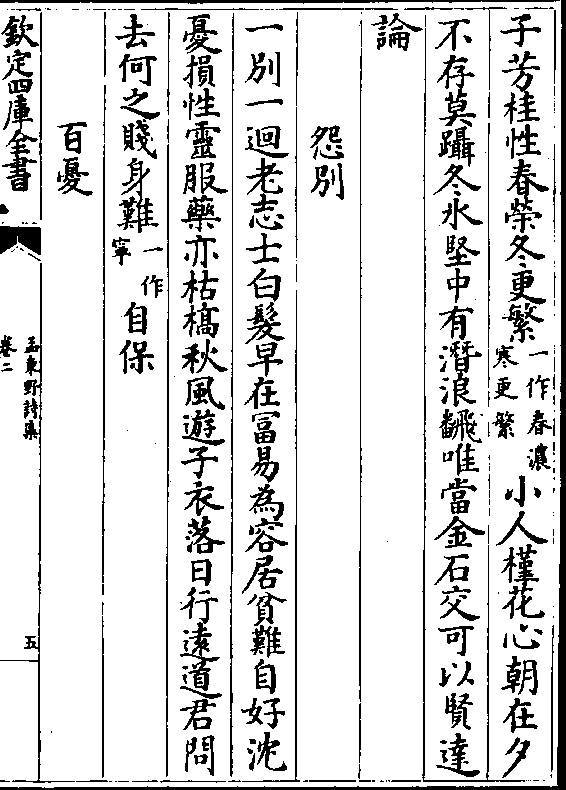 子芳桂性春榮冬更繁一作春濃寒更繁小人槿花心朝在夕
不存莫躡冬氷堅中有潛浪飜唯當金石交可以賢達
論
怨別
一別一迴老志士白髮早在富易為容居貧難自好沈
憂損性靈服藥亦枯槁秋風遊子衣落日行遠道君問
去何之賤身難一作寧自保
百憂
欽定四庫全書
孟東野詩集
卷二
五